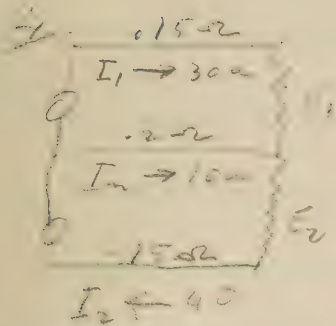 .15Ω
I₁ → 30a
E₁
.2Ω
Iₙ → 10a
E₂
.15Ω
I₂ ← 40